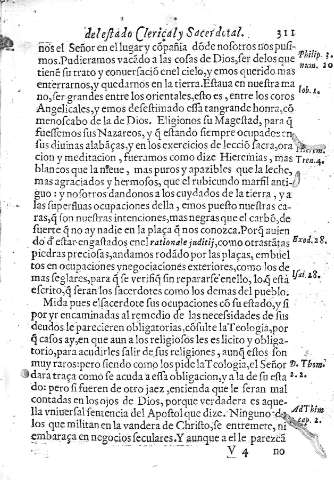 del estado Clerical, y Sacerdotal. 311
nos el Señor en el lugar y cõpañia dõde nosotros nos pusi-
mos. Pudieramos vacãdo a las cosas de Dios, ser delos que
tienẽ su trato y conuersaciõ enel cielo, y emos querido mas
enterrarnos, y quedarnos en la tierra. Estaua en nuestra ma
no, ser grandes entre los orientales, esto es, entre los coros
Angelicos, y emos desestimado essa tan grande honra, cõ
menoscabo de la de Dios. Eligionos su Magestad, para q̃
fuessemos sus Nazareos, y q̃ estando siempre ocupados en
sus diuinas alabãças, y en los exercicios de lecciõ sacra, ora
cion y meditacion, fueramos como dize Hieremias, mas
blancos que la nieue, mas puros y apazibles que la leche,
mas agraciados y hermosos, que el rubicundo marfil anti-
guo: y nosotros dandonos a los cuydados de la tierra, y a
las superfluas ocupaciones della, emos puesto nuestras ca-
ras, q̃ son nuestras intenciones, mas negras que el carbõ, de
fuerte q̃ no ay nadie en la plaça q̃ nos conozca. Porq̃ auien
do d'estar engastados enel rationale juditij, como otras tãtas
piedras preciosas, andamos rodãdo por las plaças, embuel
tos en ocupaciones y negociaciones exteriores, como los de
mas seglares, para q̃ se verifiq̃ sin reparar se enello, lo q̃ està
escrito, q̃ seràn los sacerdotes como los demas del pueblo.
Mida pues el sacerdote sus ocupaciones cõ su estado, y si
por yr encaminadas al remedio de las necessidades de sus
deudos le parecieren obligatorias, cõsulte la Teologia, por
q̃ casos ay, en que aun a los religiosos les es licito y obliga-
torio, para acudirles salir de sus religiones, aunq̃ estos son
muy raros: pero siendo como los pide la Teologia, el Señor
darà traça como se acuda a essa obligacion, y a la de su esta
do: pero si fueren de otro jaez, entienda que le seran mal
contadas en los ojos de Dios, porque verdadera es aque-
lla vniuersal sentencia del Apostol que dize. Ninguno de
los que militan en la vandera de Christo, se entremete, ni
embaraça en negocios seculares. Y aunque a el le parezcã
V 4 no
Philip. 3.
num. 20
Iob. 1.
Tren. 4.
Exod. 28.
Isai. 28.
D. Thom.
2. 2.
Ad Thim
cap. 2.